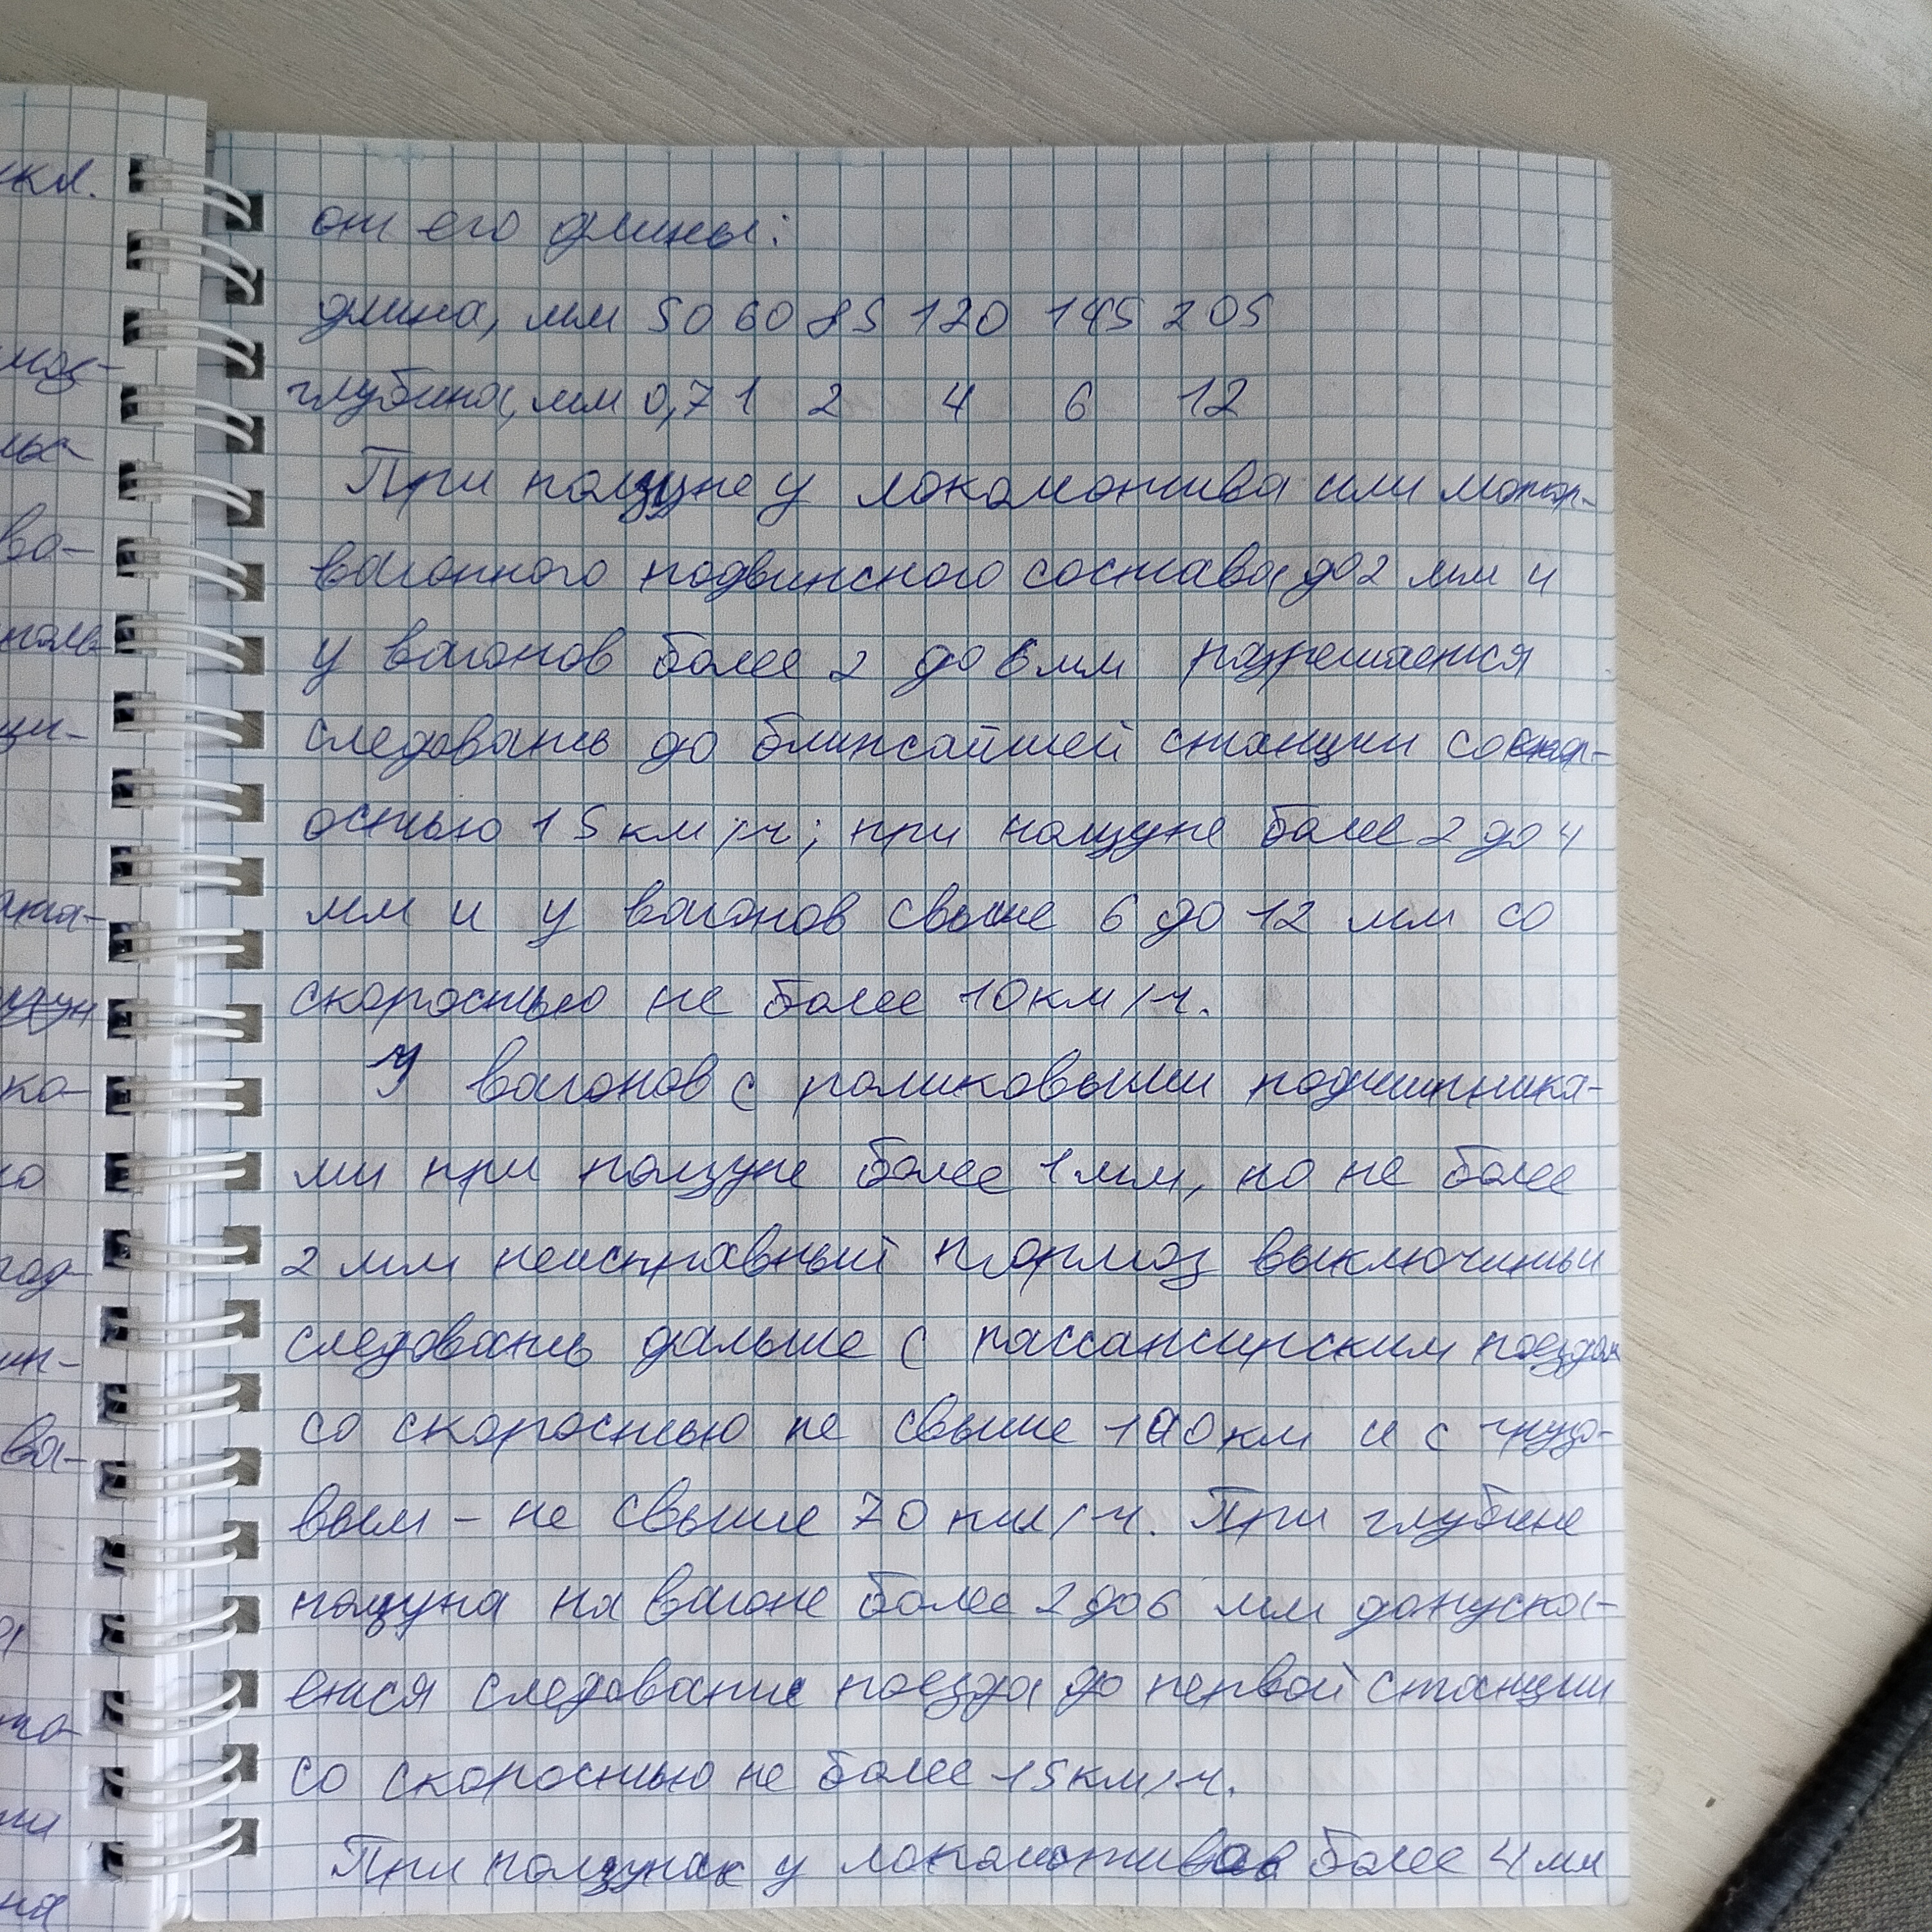 от его длины:
длина, мм 50 60 85 120 145 205
глубина, мм 0,7 1 2 4 6 12
При ползуне у локомотива или мотор-
вагонного подвижного состава до 2 мм и
у вагонов более 2 до 6 мм разрешается
следовать до ближайшей станции со скор-
остью 15 км/ч; при ползуне более 2 до 4
мм и у вагонов свыше 6 до 12 мм со
скоростью не более 10 км/ч.
У вагонов с роликовыми подшипника-
ми при ползуне более 1 мм, но не более
2 мм неисправный тормоз выключить и
следовать дальше с пассажирским поездом
со скоростью не свыше 100 км и с грузо-
вым - не свыше 70 км/ч. При глубине
ползуна на вагоне более 2 до 6 мм допуска-
ется следование поезда до первой станции
со скоростью не более 15 км/ч.
При ползунах у локомотивов более 4 мм